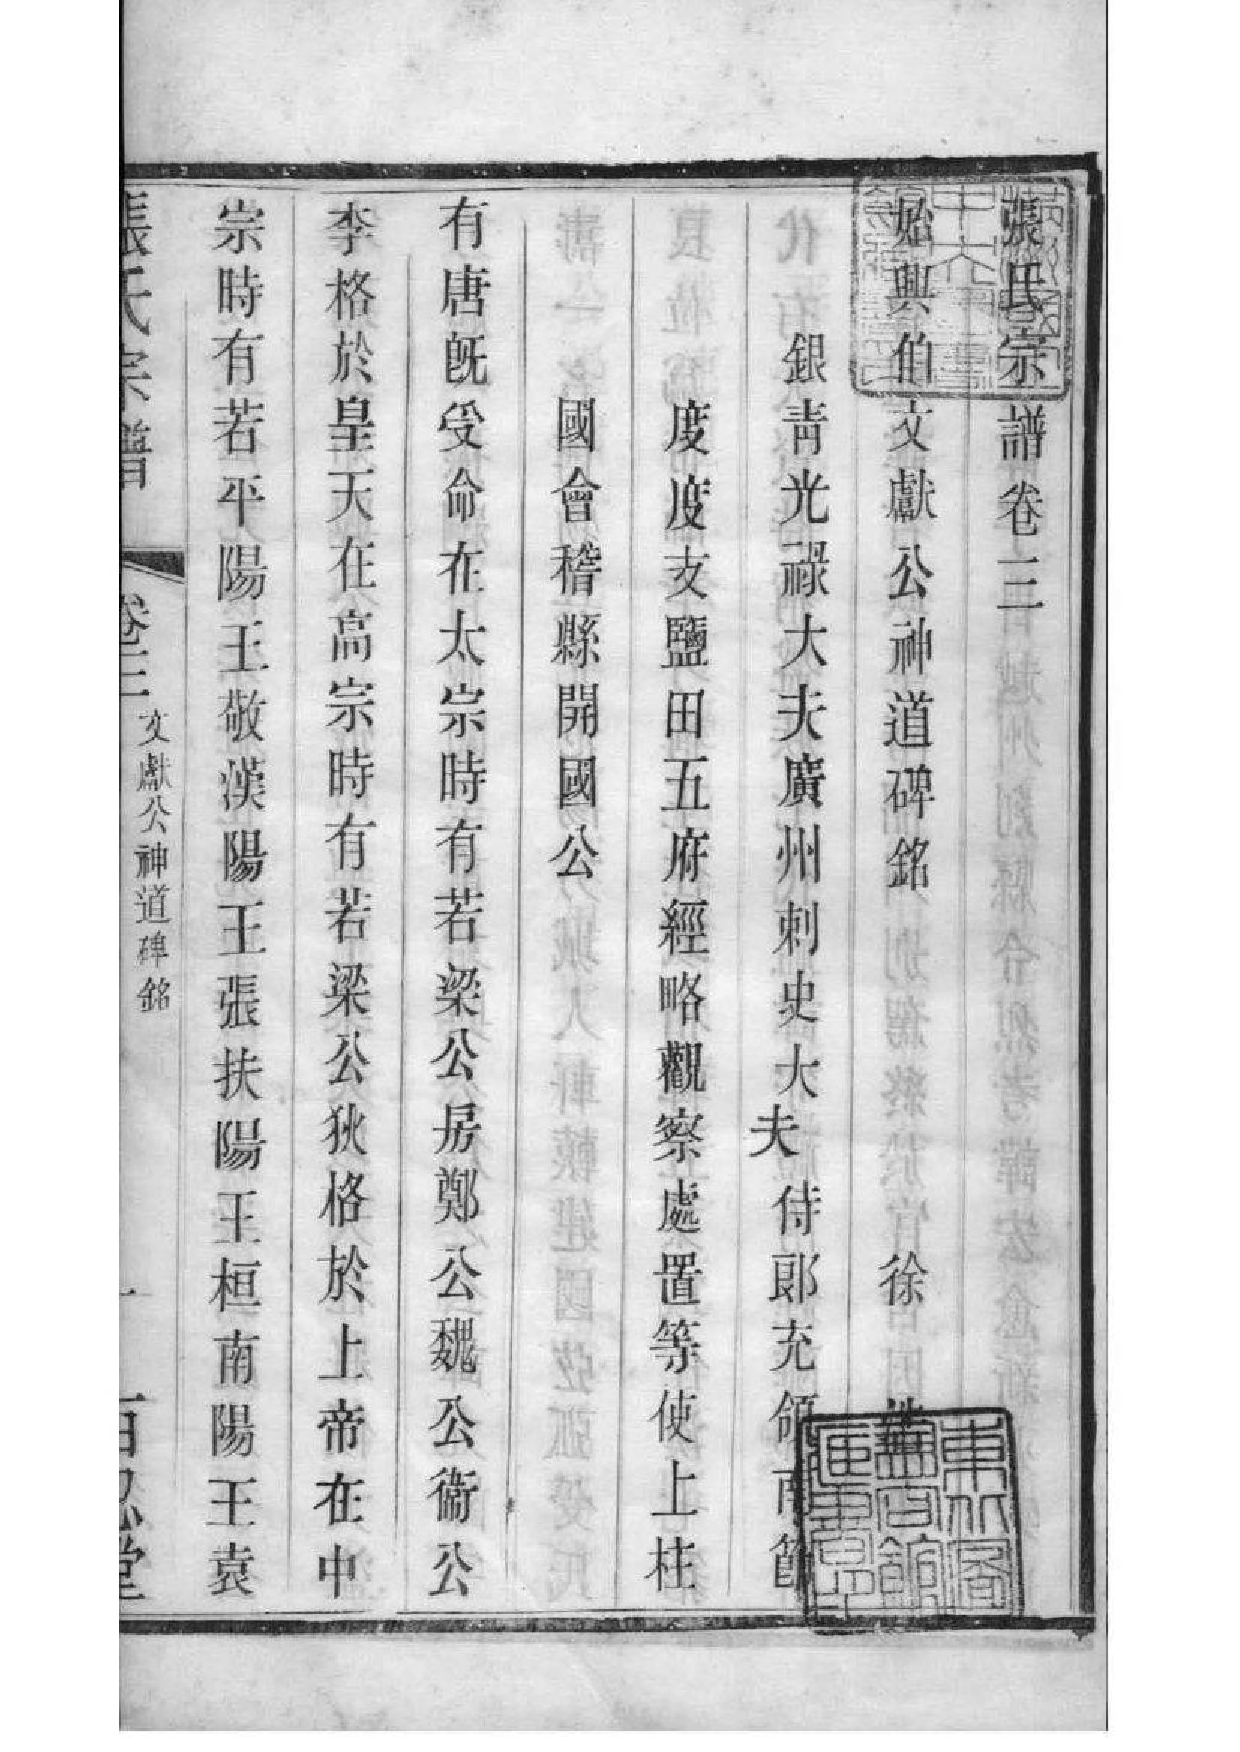 張氏宗譜卷三
始興伯文獻公神道碑銘 徐浩
銀靑光祿大夫廣州刺史大夫侍郞充領南節
度度支鹽田五府經略觀察處置等使上柱
國會稽縣開國公
有唐旣受命在太宗時有若梁公房鄭公魏公衞公
李格於皇天在高宗時有若梁公狄格於上帝在中
宗時有若平陽王敬漢陽王張扶陽王桓南陽王袁
張氏宗譜 卷三 文獻公神道碑銘 一 百忍堂